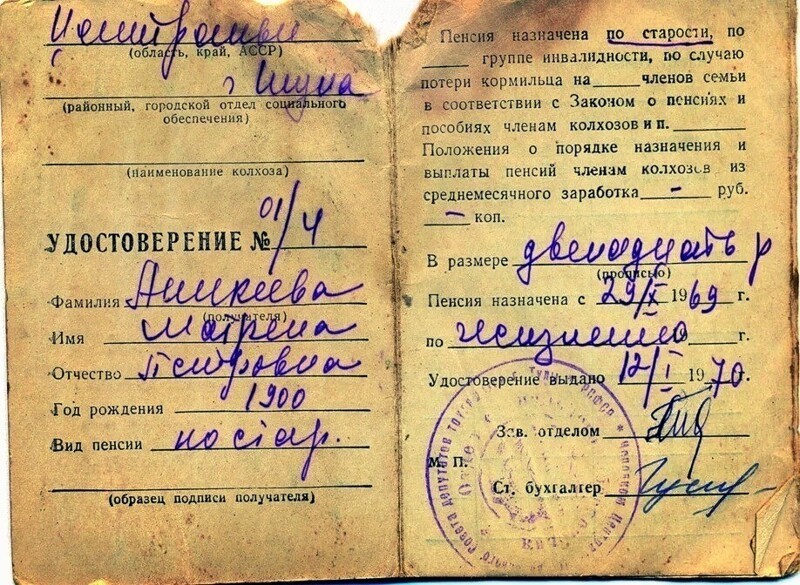 (область, край, АССР)
(районный, городской отдел социального
обеспечения)
(наименование колхоза)
УДОСТОВЕРЕНИЕ № 01/4
Фамилия Аникеева
(получателя)
Имя Матрена
Отчество Петровна
Год рождения 1900
Вид пенсии по стар.
(образец подписи получателя)
Пенсия назначена по старости, по
группе инвалидности, по случаю
потери кормильца на членов семьи
в соответствии с Законом о пенсиях и
пособиях членам колхозов и п.
Положения о порядке назначения и
выплаты пенсий членам колхозов из
среднемесячного заработка – руб.
– коп.
В размере двенадцать р
(прописью)
Пенсия назначена с 29/X 1969 г.
по жизненно г.
Удостоверение выдано 12/I 1970
Зав. отделом
М. П.
Ст. бухгалтер